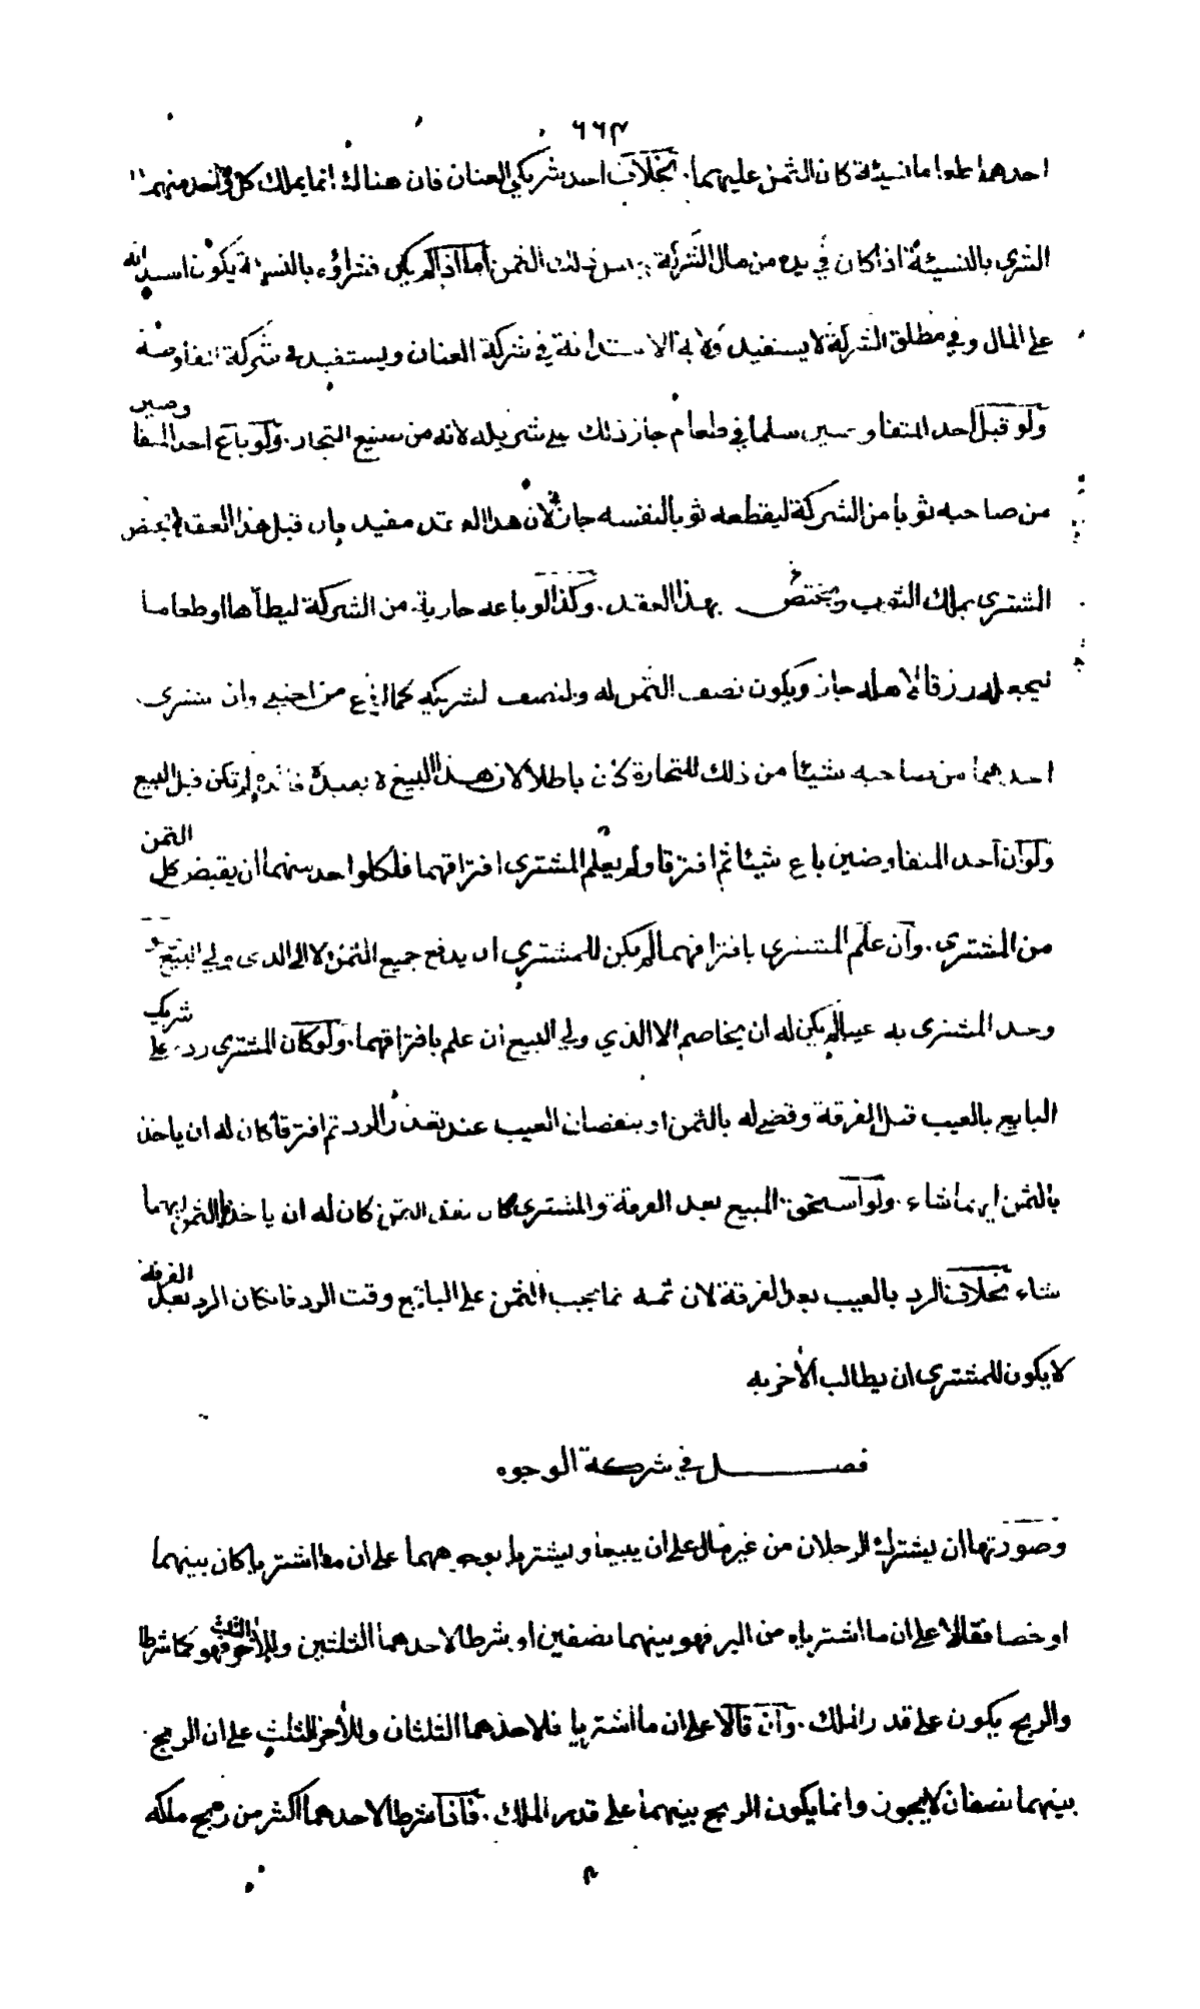 ٦٦٣
احدهما طعاما نسيئة كان الثمن عليهما. بخلاف احد شريكي العنان فان هنالك انما يملك كل واحد منهما
الشرى بالنسيئة اذا كان في يده من مال الشركة جنس ذلك الثمن اما اذا لم يكن فشراؤه بالنسيئة يكون استدانة
على المال وفي مطلق الشركة لا يستفيد ولاية الاستدانة في شركة العنان ويستفيد في شركة المفاوضة
ولو قبل احد المتفاوضين سلما في طعام جاز ذلك على شريكه لانه من صنيع التجار. ولو باع احد المتفاوضين
من صاحبه ثوبا من الشركة ليقطعه ثوبا لنفسه جاز لان هذا العقد مفيد فان قبل هذا العقد لم يختص
المشترى بملك الثوب ويختص بهذا العقد. وكذا لو باعه جارية من الشركة ليطأها او طعاما
ليجعله رزقا لاهله جاز ويكون نصف الثمن له والنصف لشريكه كما لو باع من اجنبي وان اشترى
احدهما من صاحبه شيئا من ذلك للتجارة كان باطلا لان هذا البيع لا يفيد فائدة لم تكن قبل البيع
ولو ان احد المتفاوضين باع شيئا ثم افترقا ولم يعلم المشترى افتراقهما فلكل واحد منهما ان يقبض كل الثمن
من المشترى. وان علم المشترى بافتراقهما لم يكن للمشترى ان يدفع جميع الثمن الا الى الذى ولي البيع ولو
وجد المشترى به عيبا لم يكن له ان يخاصم الا الذي ولي البيع ان علم بافتراقهما. ولو كان المشترى رد على شريك
البايع بالعيب قبل الفرقة وقضى له بالثمن او بنقصان العيب عند تعذر الرد ثم افترقا كان له ان ياخذ
بالثمن ايهما شاء. ولو استحق المبيع بعد الفرقة والمشترى كان نقد الثمن كان له ان ياخذ بالثمن ايهما
شاء بخلاف الرد بالعيب بعد الفرقة لان ثمه انما يجب الثمن على البائع وقت الرد فاذا كان الرد بعد الفرقة
لا يكون للمشترى ان يطالب الآخر به
فصل في شركة الوجوه
وصورتها ان يشترك الرجلان من غير مال على ان يبيعا ويشتريا بوجوههما على ان ما اشتريا كان بينهما
او خصا فقالا على ان ما اشترياه من البر فهو بينهما نصفين او بشرطا لاحدهما الثلثين وللآخر الثلث فهو كما شرطا
والربح يكون على قدر الملك. وان قالا على ان ما اشتريا فلاحدهما الثلثان وللآخر الثلث على ان الربح
بينهما نصفان لا يجوز وانما يكون الربح بينهما على قدر الملك. فاذا شرطا لاحدهما اكثر من ربح ملكه